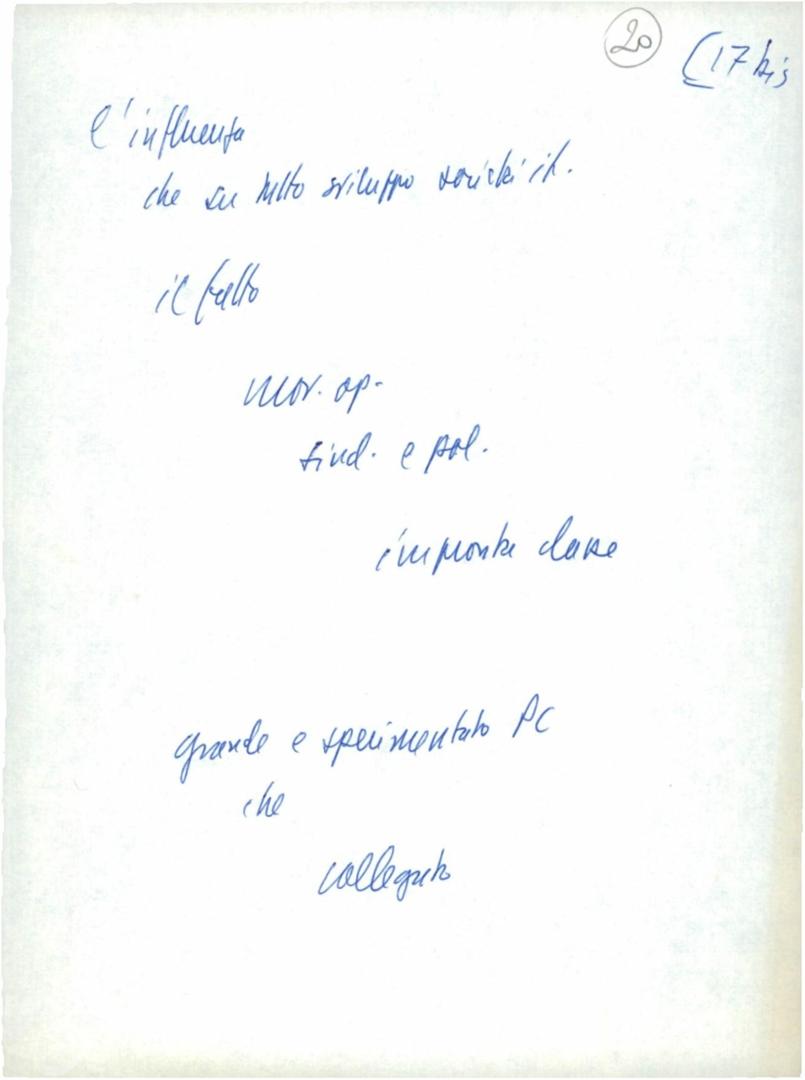 20 (17 bis
l'influenza
che su tutto sviluppo società it.
il fatto
mov. op.
sind. e pol.
impronta classe
grande e sperimentato PC
che
collegato